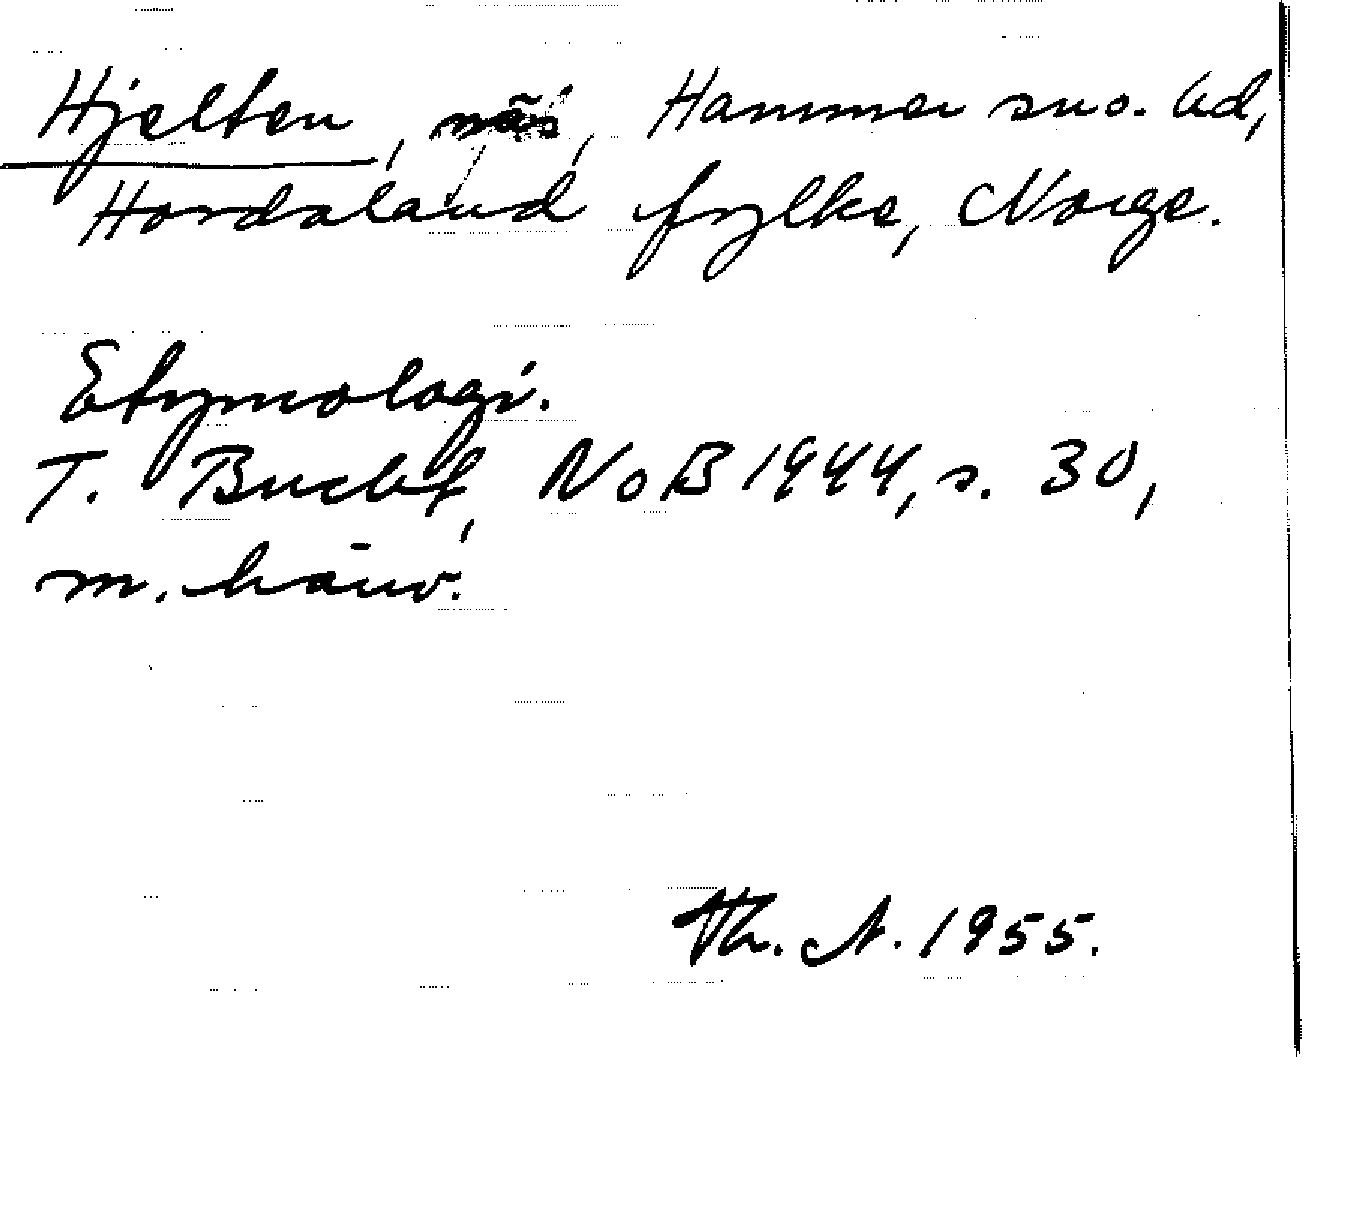 Hjelten, näs, Hammer sno. hd,
Hordaland fylke, Norge.
Etymologi.
T. Bucht, NoB 1944, s. 30,
m. hänv.
Th. A. 1955.